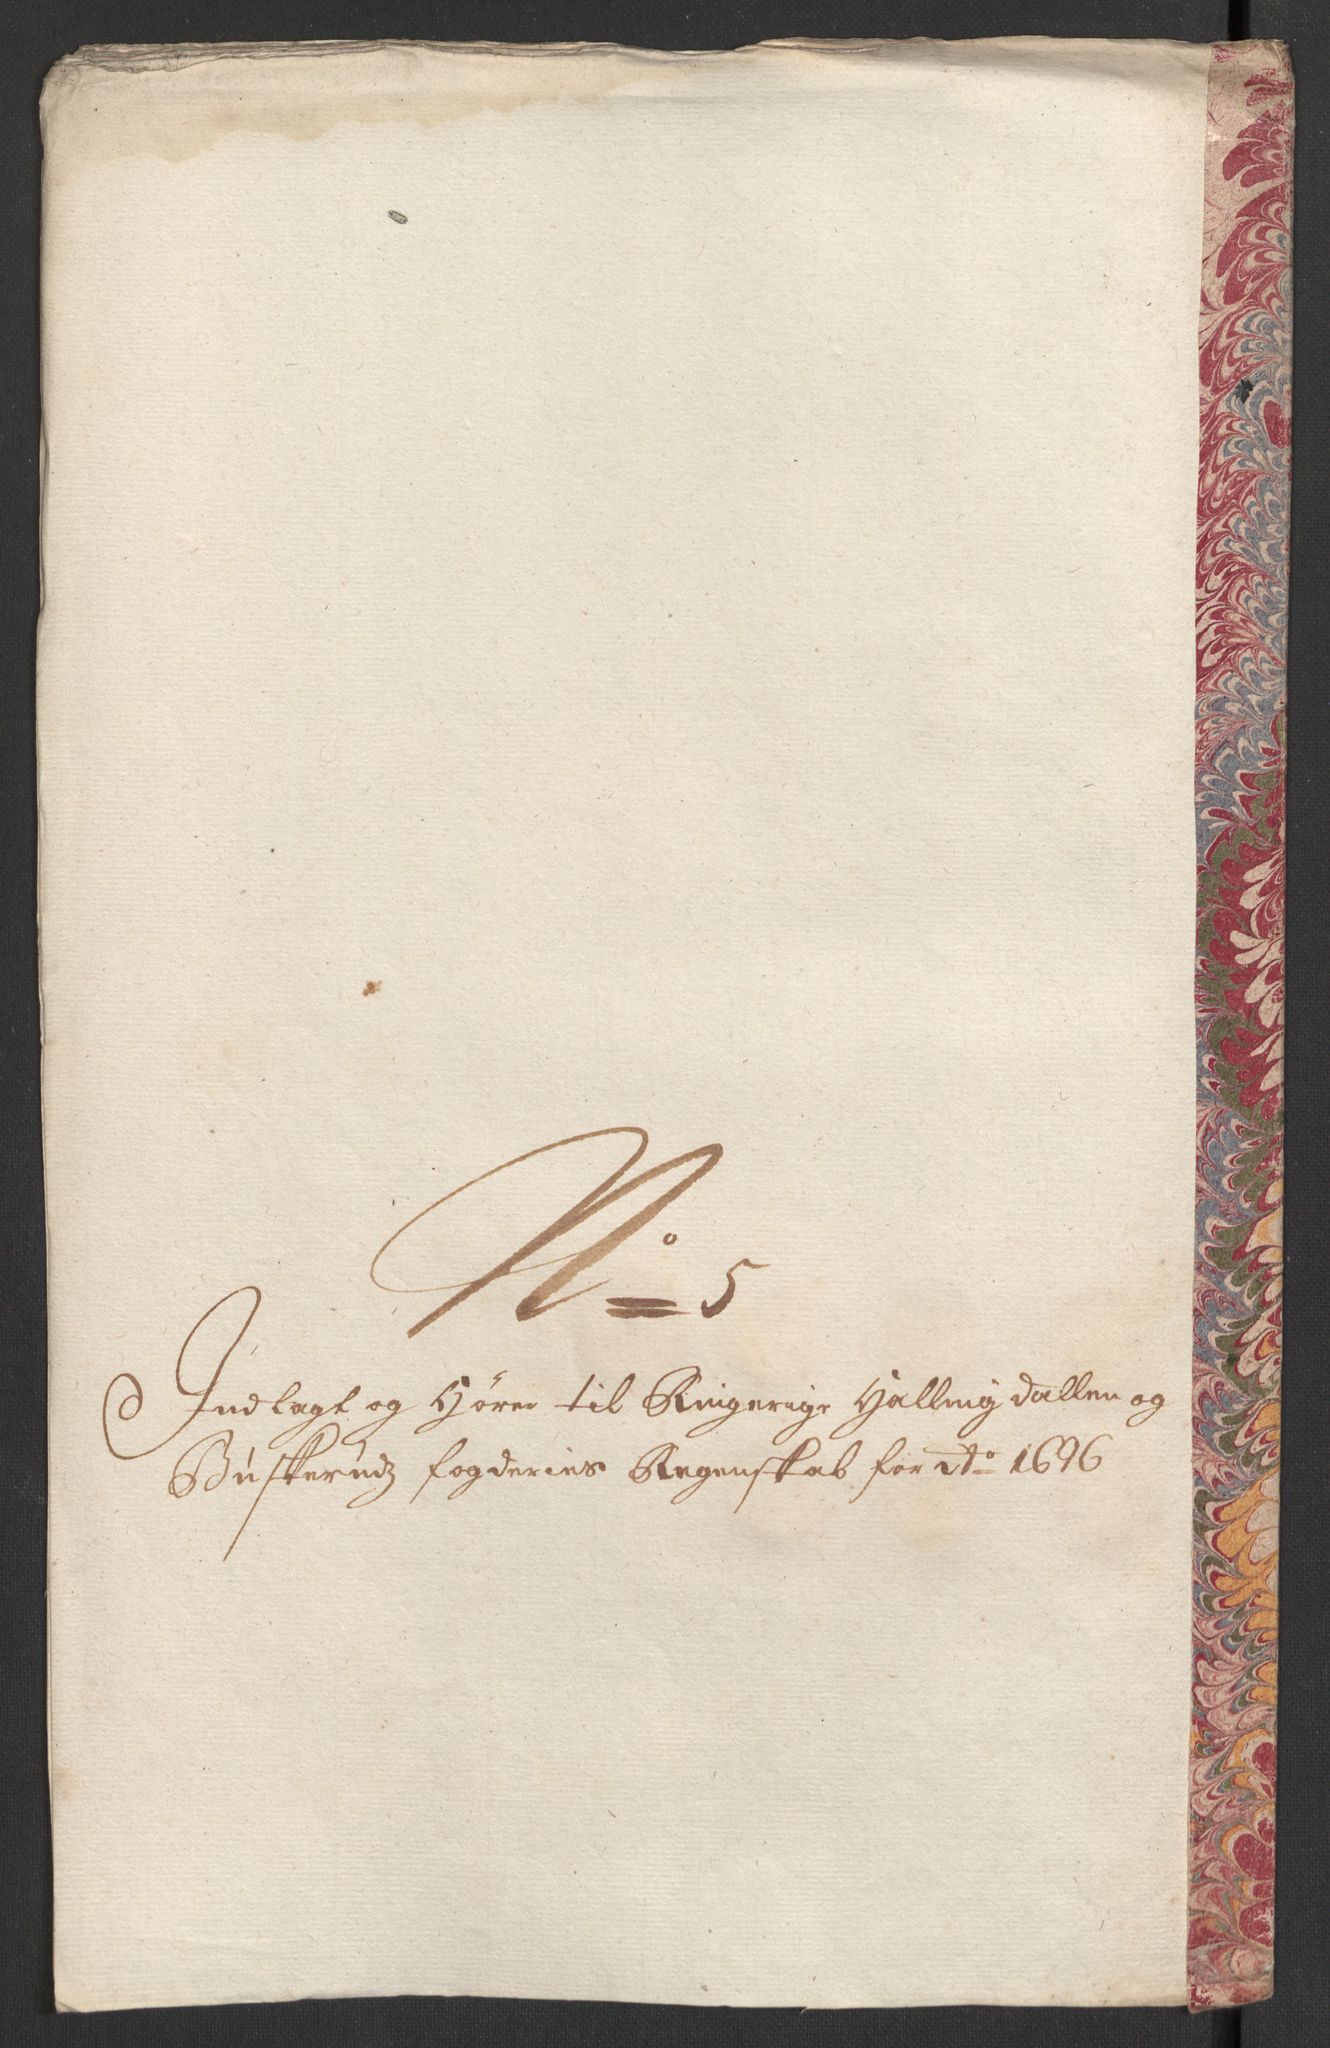 No 5
Indlagt og Hører til Ringerige Hallingdallen og
Buskerudz fogderies Regenskab for Ao 1696